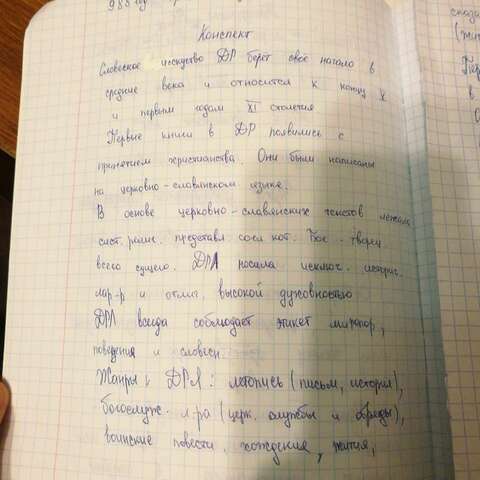 988 год
Конспект
Словесное исскуство ДР берёт своё начало в
средние века и относится к концу X
и первым годам XI столетия
Первые книги в ДР появились с
принятием христианства. Они были написаны
на церковно-словянском языке.
В основе церковно-славянских текстов лежала
сист. религ. представл сосл кот. Бог - творец
всего сущего. ДРЛ носила исключ. историч.
хар-р и отлич. высокой духовностью
ДРЛ всегда соблюдает этикет миропор,
поведения и словесн.
Жанры в ДРЛ: летопись (письм, история),
богослуж. л-ра (церк. службы и обряды),
воинские повести, хождения, жития,
сказа
(жит
Пер
в